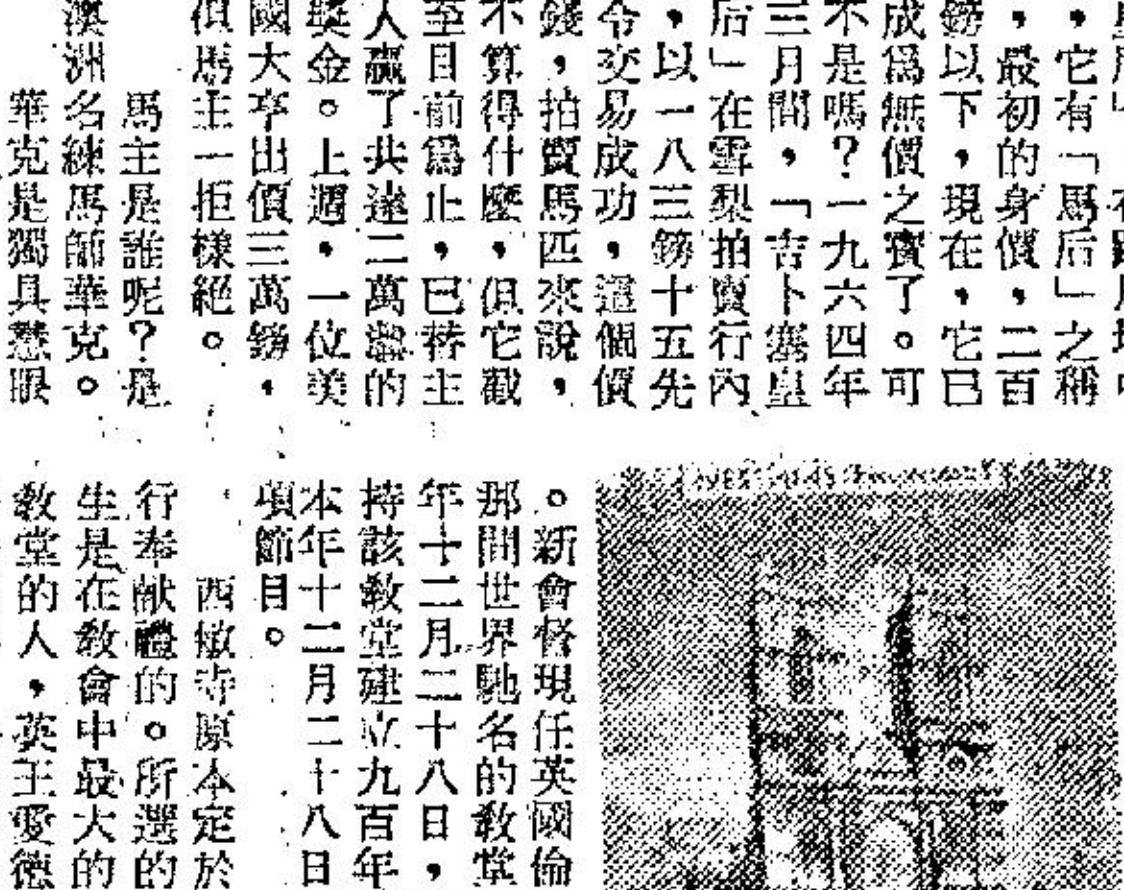 ，它有「馬后」之稱
，最初的身價，二百
鎊以下，現在，它已
成為無價之寳了。可
不是嗎？一九六四年
三月間，「吉卜塞皇
后」在雪梨拍賣行內
，以一八三鎊十五先
令交易成功，這個價
錢，拍賣馬匹來說，
不算得什麼，但它截
至目前為止，已替主
人贏了共達二萬鎊的
獎金。上週，一位美
國大亨出價三萬鎊，
但馬主一拒樣絕。
馬主是誰呢？是
澳洲名練馬師華克。
華克是獨具慧眼
。新會督現任英國倫
那間世界馳名的教堂
年十二月二十八日，
持該教堂建立九百年
本年十二月二十八日
項節目。
西敏寺原本定於
行奉献禮的。所選的
生是在教會中最大的
教堂的人，英王愛德